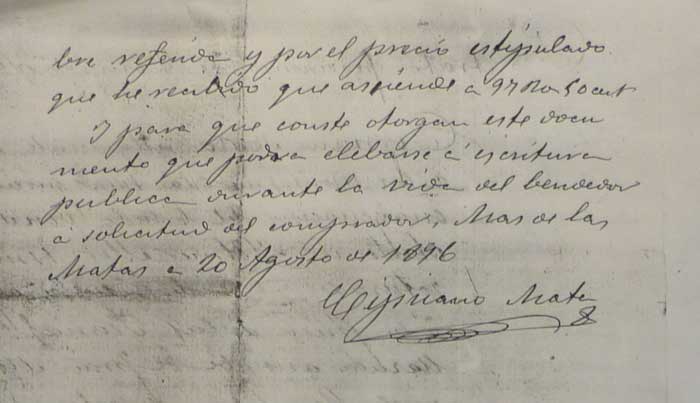 bre referida y por el precio estipulado
que he recibido que asciende a
Y para que conste otorgan este docu
mento que podra elebarse á escritura
publica durante la vida del bendedor
á solicitud del comprador. Mas de las
Matas a 20 Agosto de 1896
Cipriano Mata